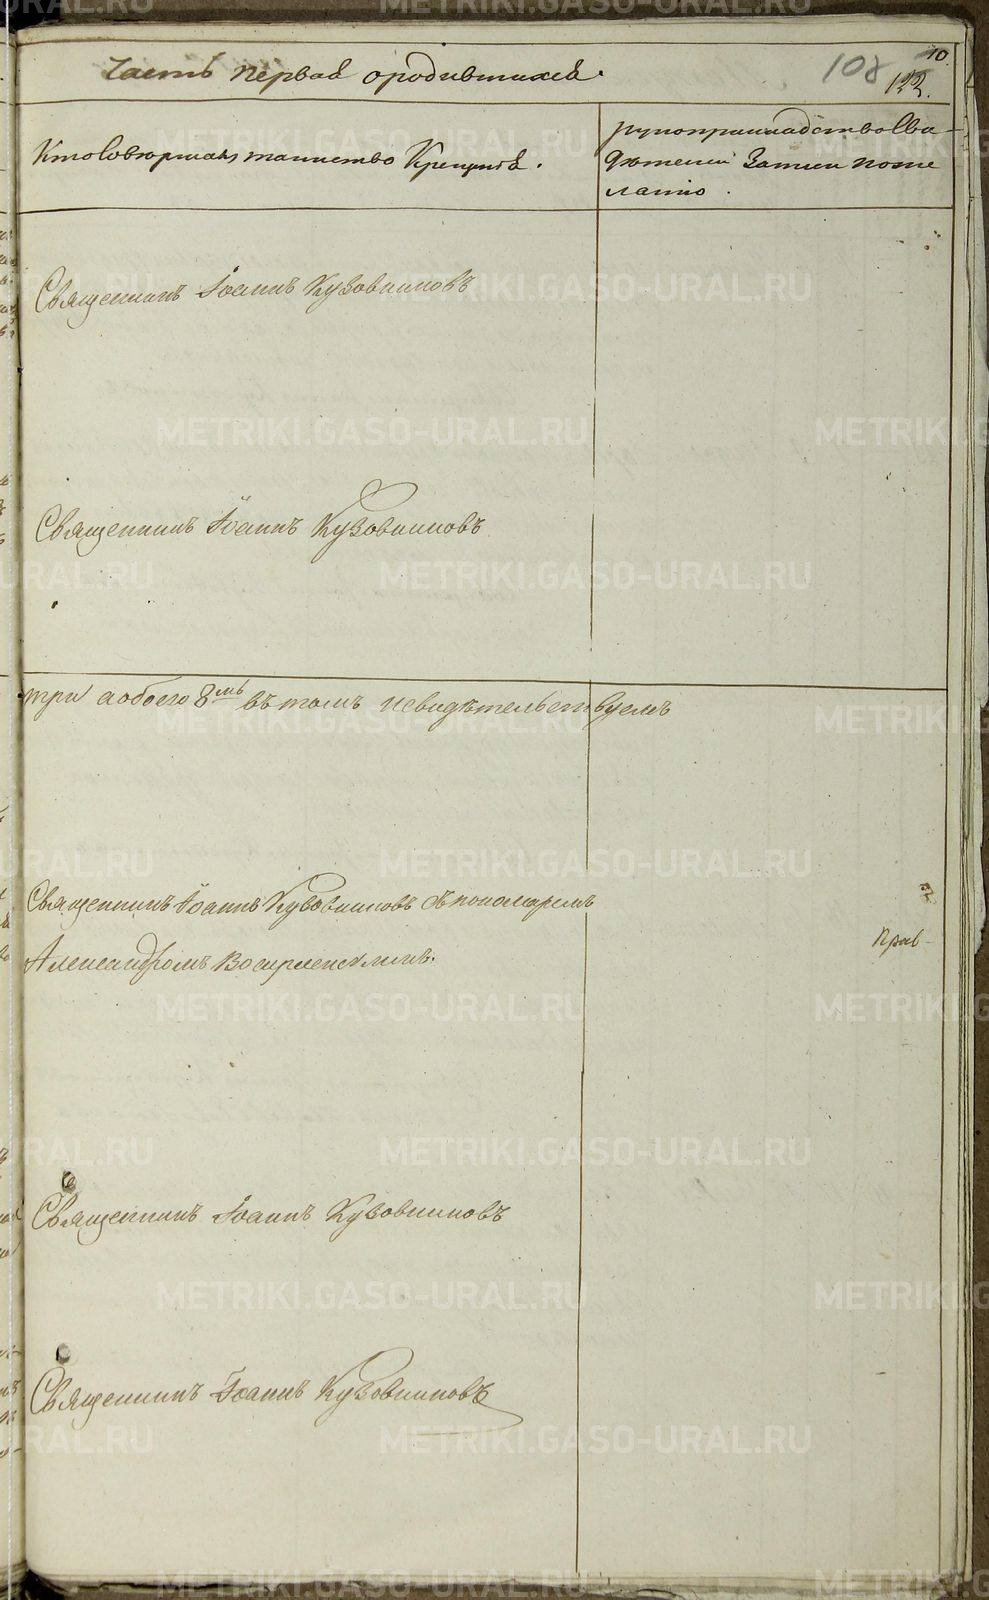 Часть первая ородившихся.
108
10.
122.
Ктосовершалъ таинство Крещенія.
рукоприкладство Сви-
дѣтелей Записи поже
ланію.
Священникъ Іоаннъ Кузовниковъ
Священникъ Іоаннъ Кузовниковъ
три аобоего 8мь въ томъ исвидѣтельствуемъ
Священникъ Іоаннъ Кузовниковъ съпономаремъ
Александромъ Воскресенскимъ.
Прав-
Священникъ Іоаннъ Кузовниковъ
Священникъ Іоаннъ Кузовниковъ
METRIKI.GASO-URAL.RU